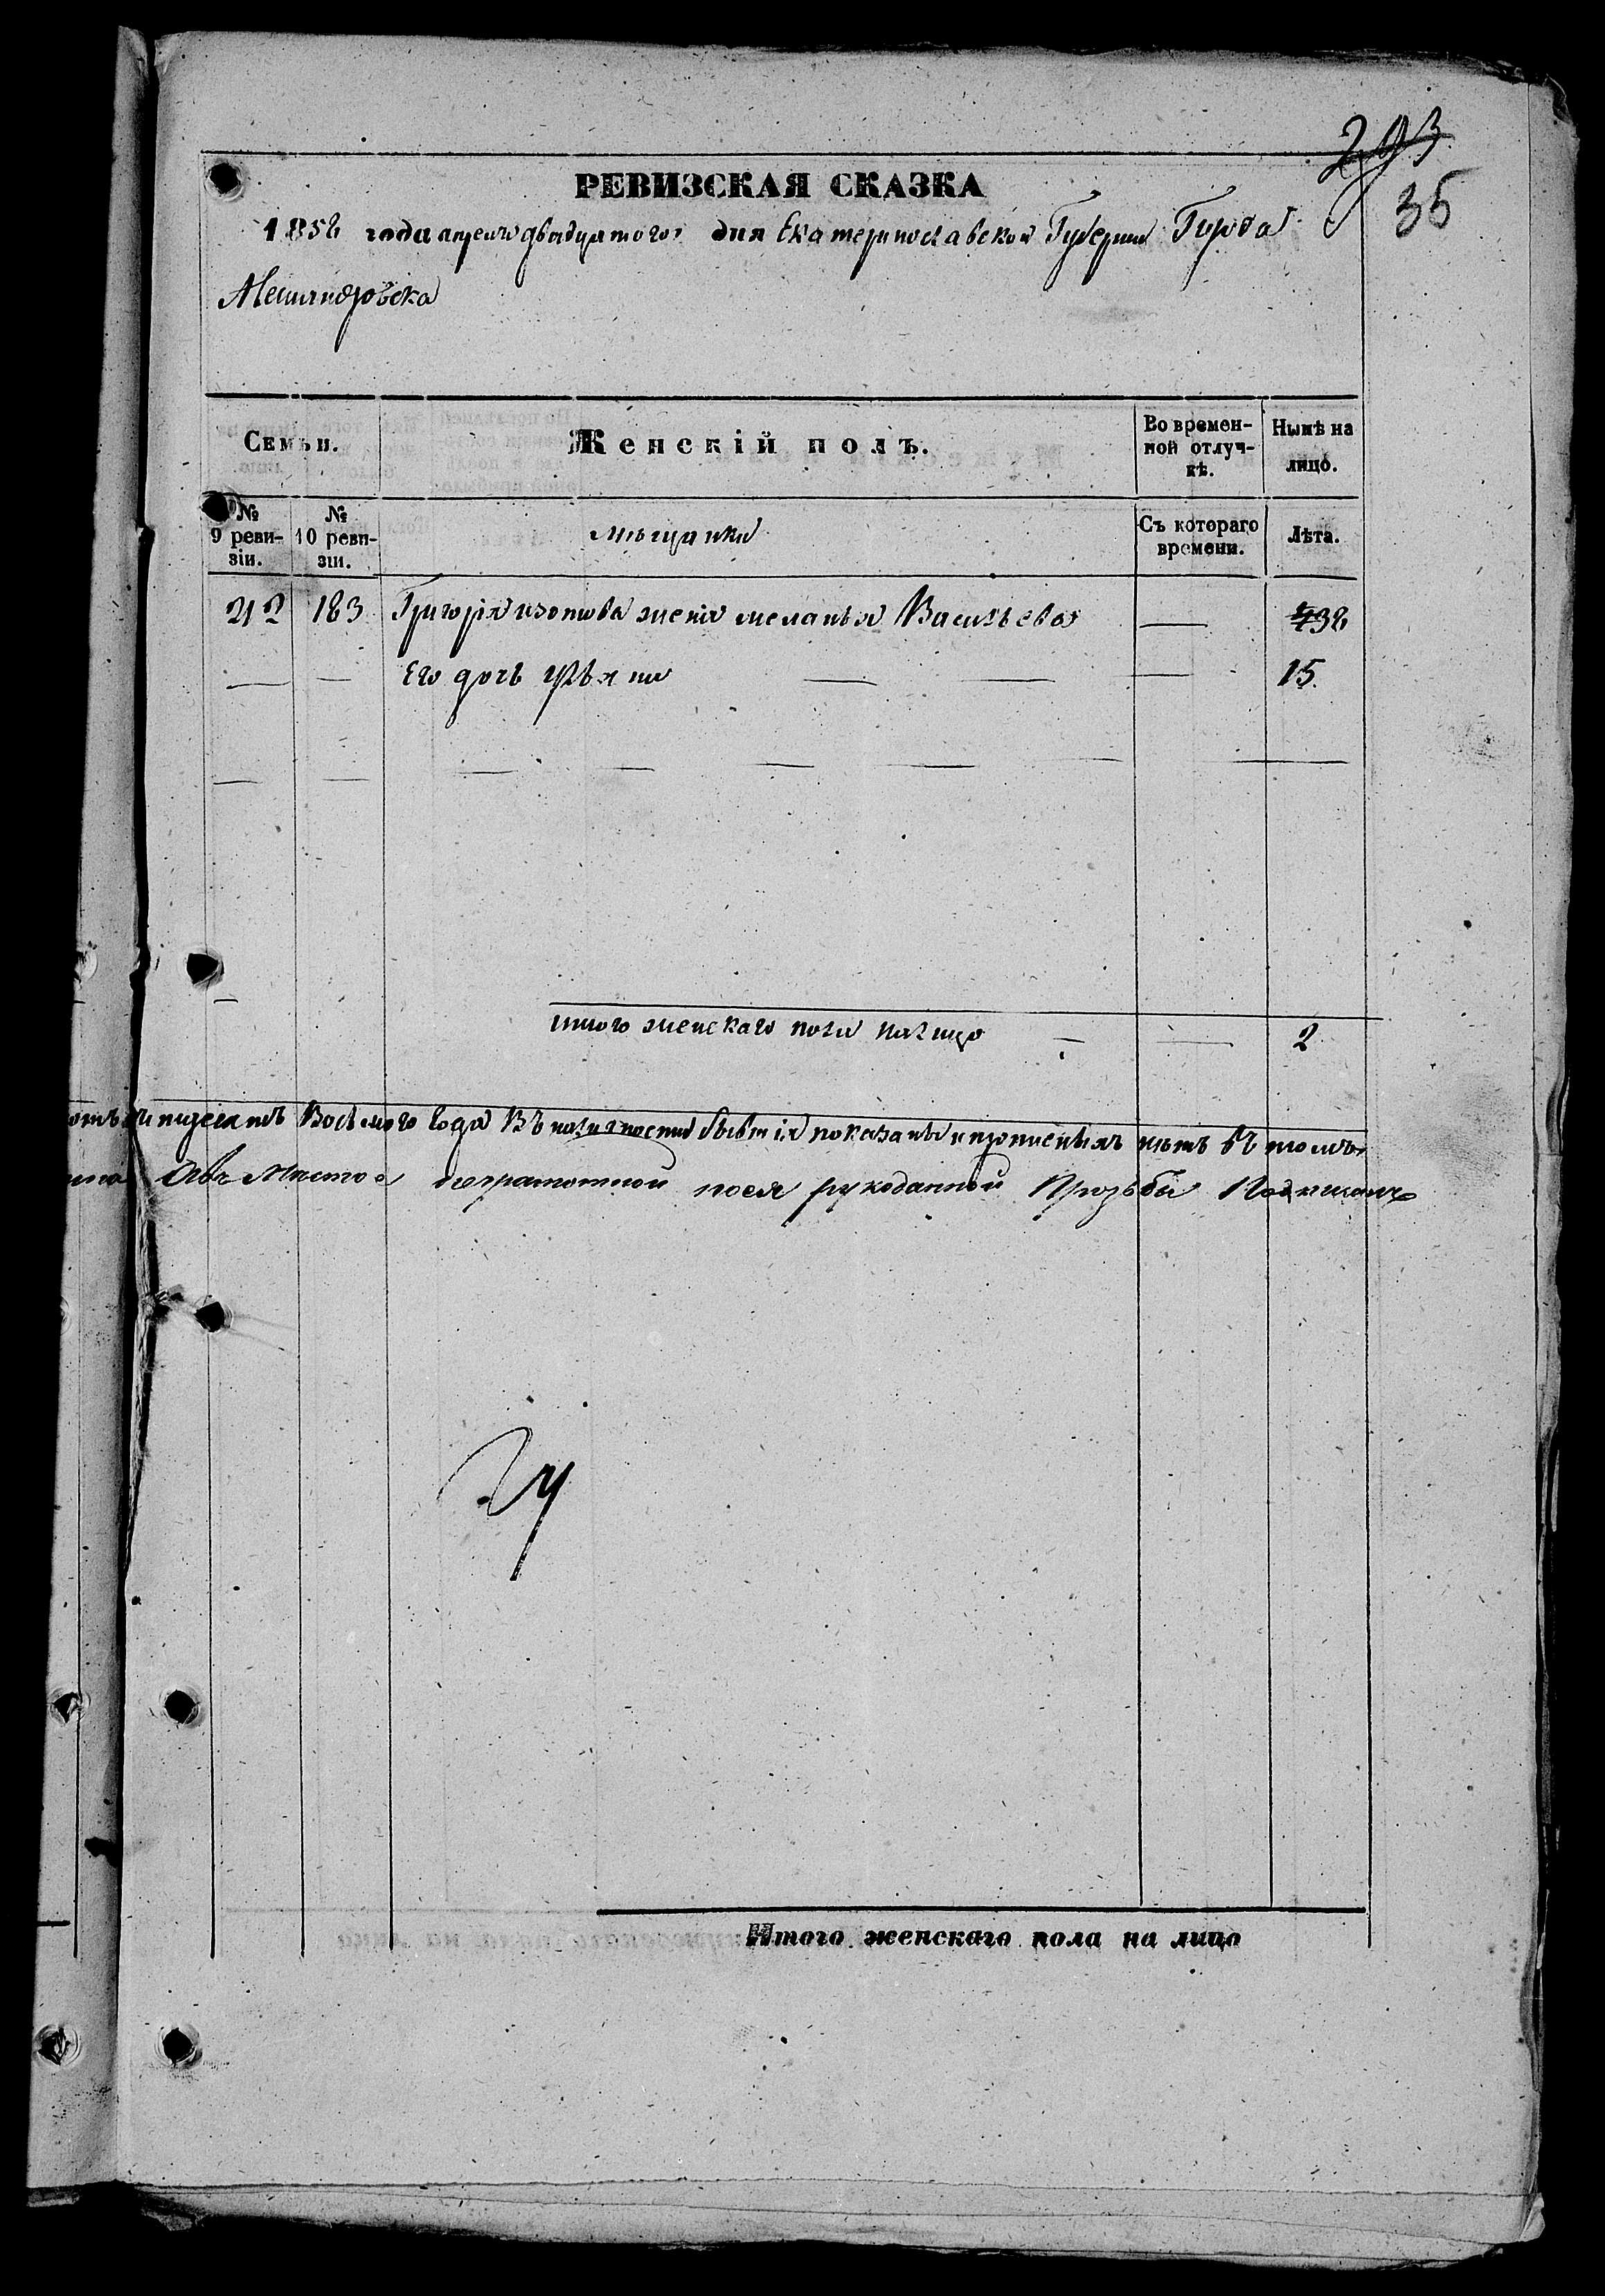 293
35
РЕВИЗСКАЯ СКАЗКА
1858 года апреля двадцатого дня Екатеринославской Губернии Города
Александровска
Семьи.
Женскій полъ.
Во времен-
ной отлуч-
кѣ.
Нынѣ на
лицо.
№
9 реви-
зіи.
№
10 реви-
зіи.
мѣщанки
Съ котораго
времени.
Лѣта.
212 183 Григорія изотова жена меланья Васильева — 38
— — Его дочь Ульяна — — — 15
итого женскаго пола налицо — — 2
Восьмого года Въ наличности бывшія показаны и прописныхъ нетъ въ томъ
Места неграмотной поея рукоданной Прозьбы Подписалъ
24
Итого женскаго пола на лицо